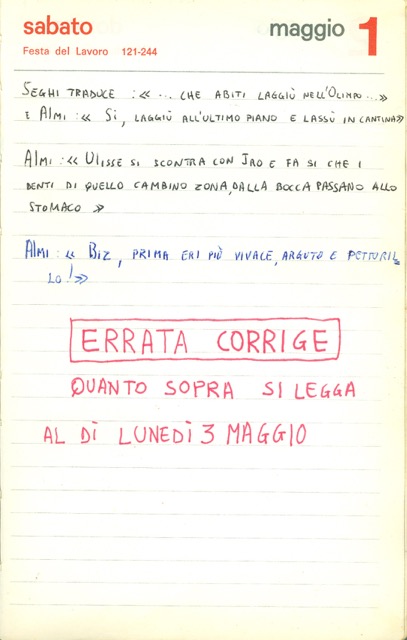 sabato maggio 1
Festa del Lavoro 121-244
SEGHI TRADUCE : «... CHE ABITI LAGGIÙ NELL'OLIMPO ...»
E ALMI : « SI, LAGGIÙ ALL'ULTIMO PIANO E LASSÙ IN CANTINA»
ALMI : « ULISSE SI SCONTRA CON IRO E FA SI CHE I
DENTI DI QUELLO CAMBINO ZONA, DALLA BOCCA PASSANO ALLO
STOMACO »
ALMI : « BIZ, PRIMA ERI PIÙ VIVALE, ARGUTO E PETTORIL=
LO ! »
ERRATA CORRIGE
QUANTO SOPRA SI LEGGA
AL DÌ LUNEDÌ 3 MAGGIO